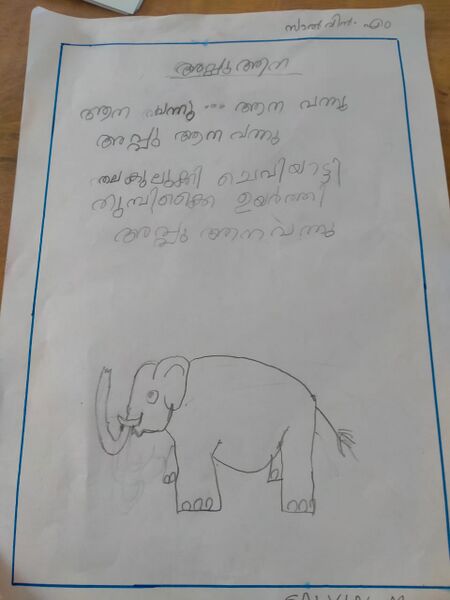 സാൽവിൻ. എം
അപ്പു ആന
ആന വന്നു ... ആന വന്നു
അപ്പു ആന വന്നു
തലകുലുക്കി ചെവിയാട്ടി
തുമ്പിക്കൈ ഉയർത്തി
അപ്പു ആന വന്നു
SALVIN M